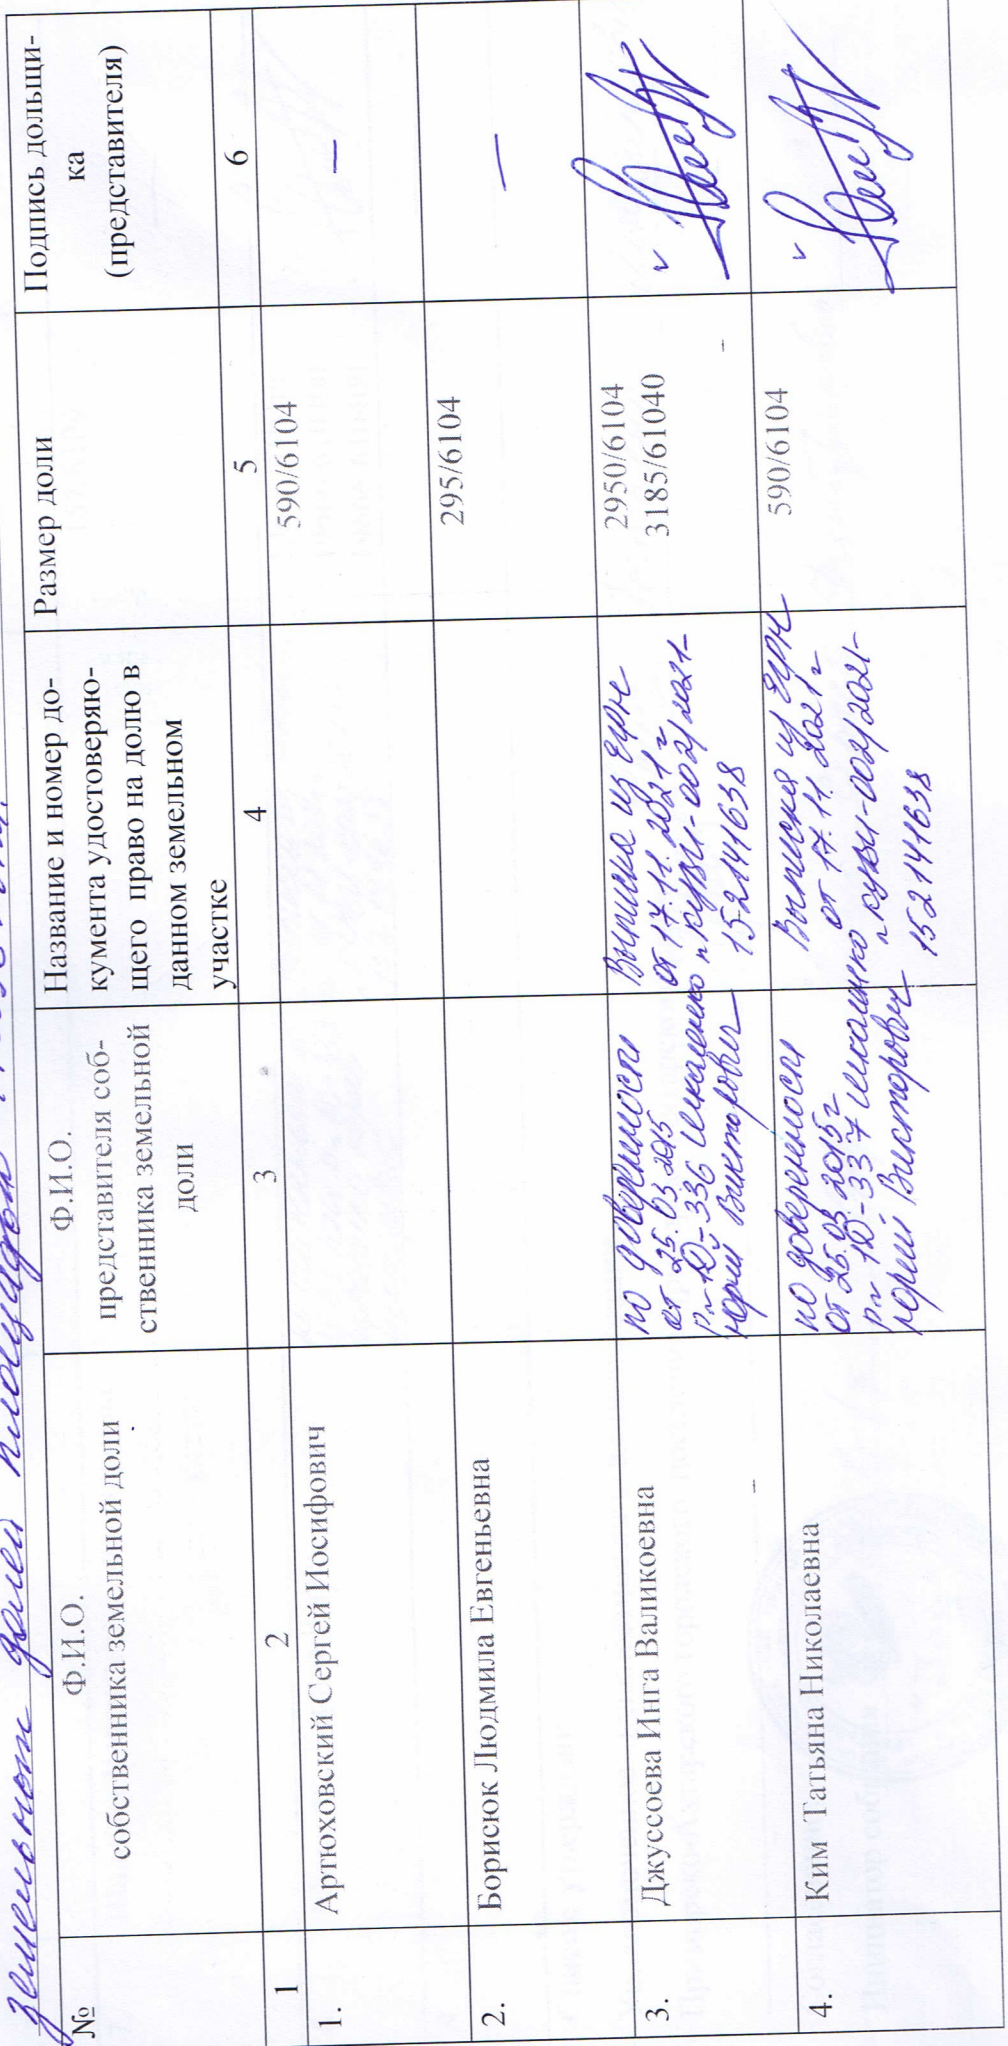 земельных долей площадью
№
Ф.И.О.
собственника земельной доли
Ф.И.О.
представителя соб-
ственника земельной
доли
Название и номер до-
кумента удостоверяю-
щего право на долю в
данном земельном
участке
Размер доли
Подпись дольщи-
ка
(представителя)
1
2
3
4
5
6
1.
Артюховский Сергей Иосифович
590/6104
—
2.
Борисюк Людмила Евгеньевна
295/6104
—
3.
Джуссоева Инга Валикоевна
по доверенности
от 25.03.2015
1Д-336 Шкаленко
Юрий Викторович
Выписка из ЕГРН
от 17.11.2021г
КУВИ-002/2021-
152141638
2950/6104
3185/61040
4.
Ким Татьяна Николаевна
по доверенности
от 25.03.2015г
1Д-337 Шкаленко
Юрий Викторович
Выписка из ЕГРН
от 17.11.2021г
КУВИ-002/2021-
152141638
590/6104